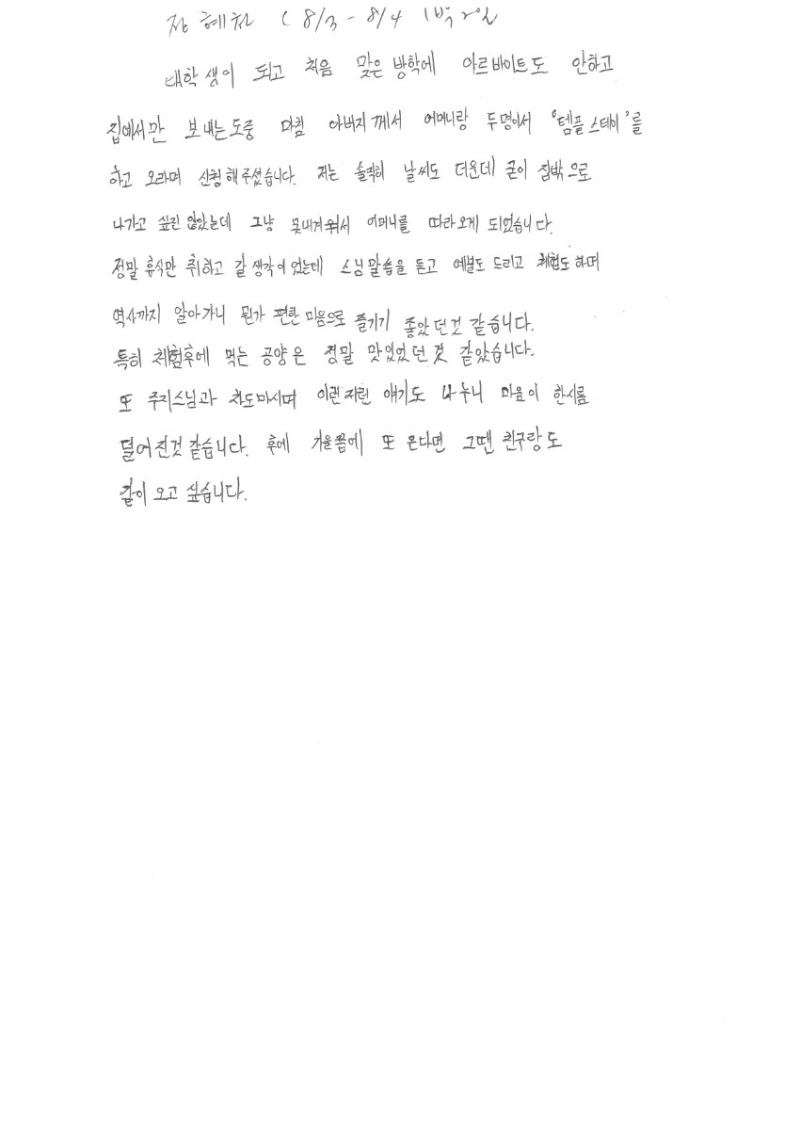 장혜진 ( 8/3 - 8/4 1박 2일
대학생이 되고 처음 맞은 방학에 아르바이트도 안하고
집에서만 보내는도중 마침 아버지께서 어머니랑 두명이서 '템플스테이'를
하고 오라며 신청해주셨습니다. 저는 솔직히 날씨도 더운데 굳이 집밖으로
나가고 싶진 않았는데 그냥 못내겨워서 어머니를 따라오게 되었습니다.
정말 휴식만 취하고 갈 생각이었는데 스님말씀을 듣고 예불도 드리고 체험도하며
역사까지 알아가니 뭔가 편한 마음으로 즐기기 좋았던것 같습니다.
특히 체험후에 먹는 공양은 정말 맛있었던것 같았습니다.
또 주지스님과 차도마시며 이런저런 얘기도 나누니 마음이 한시름
덜어진것 같습니다. 후에 겨울쯤에 또 온다면 그땐 친구랑도
같이 오고 싶습니다.